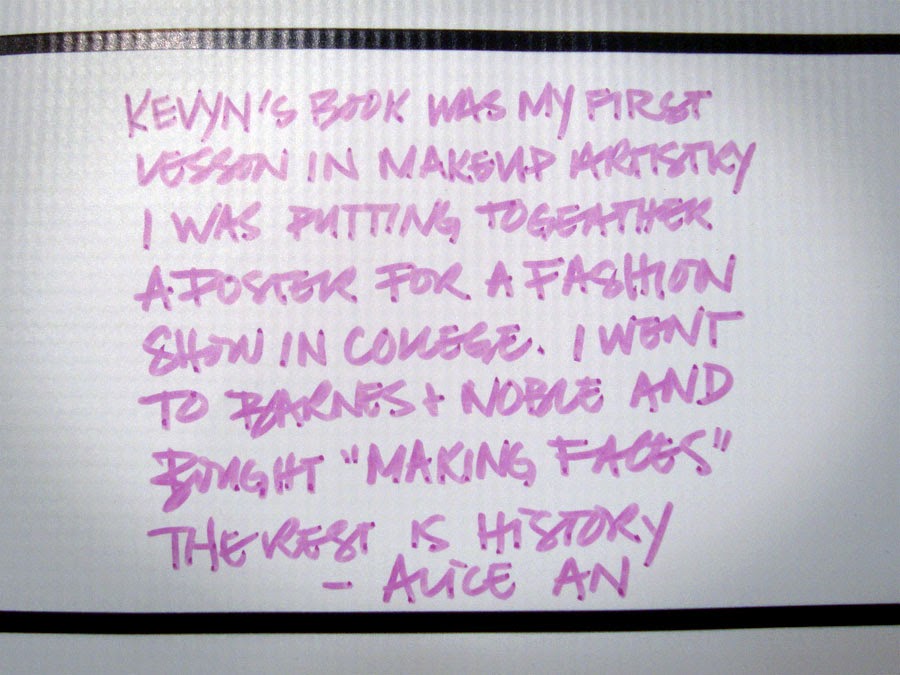 KEVYN'S BOOK WAS MY FIRST
LESSON IN MAKEUP ARTISTRY
I WAS PUTTING TOGEATHER
A POSTER FOR A FASHION
SHOW IN COLLEGE. I WENT
TO BARNES + NOBLE AND
BOUGHT "MAKING FACES"
THE REST IS HISTORY
- ALICE AN